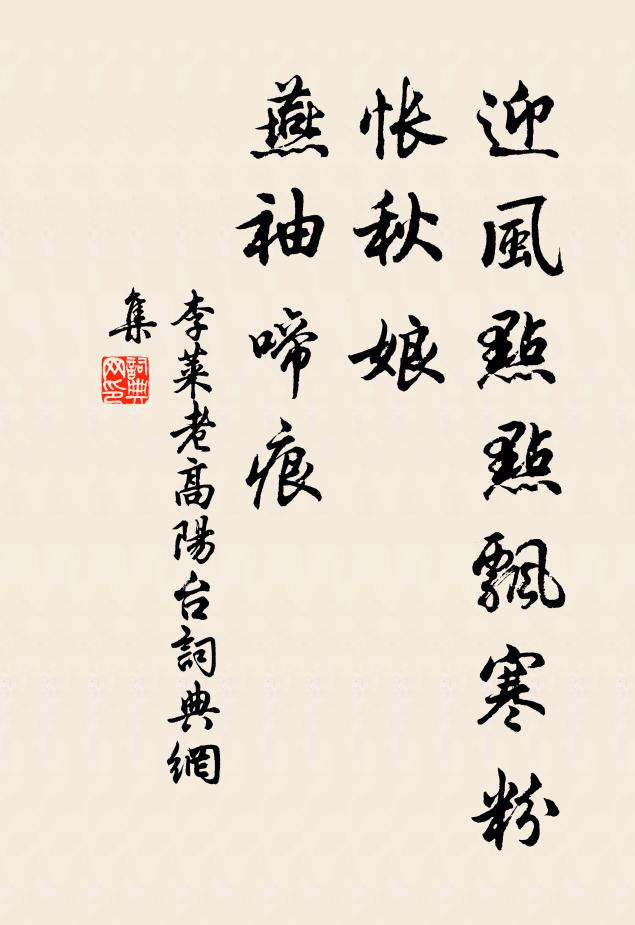 迎風點點飄寒粉
悵秋娘
燕袖啼痕
李萊老高陽台詞典網
集
詞典網印